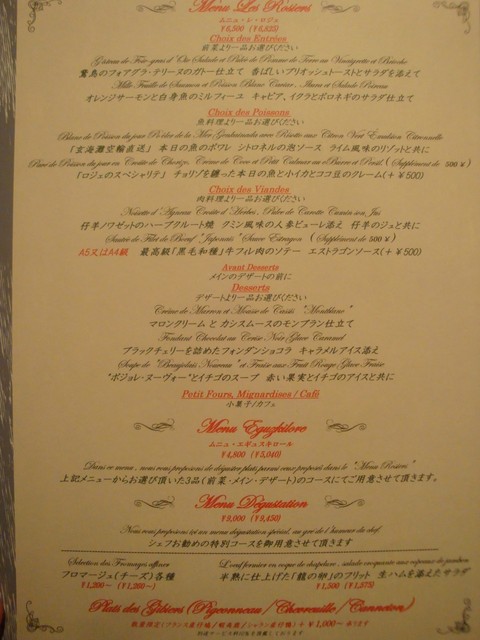 Menu Les Rosiers
ムニュ・レ・ロジェ
¥6,500 (¥6,825)
Choix des Entrées
前菜より一品お選びください
Gâteau de Foie-gras d'Oie Salade et Pâté de Pomme de Terre au Vinaigrette et Brioche
鵞鳥のフォアグラ・テリーヌのガトー仕立て 香ばしいブリオッシュトーストとサラダを添えて
Mille Feuille de Saumon et Poisson Blanc Caviar, Ikura et Salade Poireau
オレンジサーモンと白身魚のミルフィーユ キャビア、イクラとポロネギのサラダ仕立て
Choix des Poissons
魚料理より一品お選びください
Blanc de Poisson du jour Poêler de la Mer Genkainada avec Risotto aux Citron Vert Emulsion Citronnelle
「玄海灘空輸直送」 本日の魚のポワレ シトロネルの泡ソース ライム風味のリゾットと共に
Pavé de Poisson du jour en Croûte de Chorizo, Crème de Coco et Petit Calmar au Beurre et Persil (Supplément de 500 ¥)
「ロジェのスペシャリテ」 チョリソを纏った本日の魚と小イカとココ豆のクレーム(+¥500)
Choix des Viandes
肉料理より一品お選びください
Noisette d'Agneau Croûte d'Herbes, Purée de Carotte Cumin son Jus
仔羊ノワゼットのハーブクルート焼 クミン風味の人参ピューレ添え 仔羊のジュと共に
Sauté de Filet de Boeuf "Japonais" Sauce Estragon (Supplément de 500 ¥)
A5又はA4級 最高級「黒毛和種」牛フィレ肉のソテー エストラゴンソース(+¥500)
Avant Desserts
メインのデザートの前に
Desserts
デザートより一品お選びください
Crème de Marron et Mousse de Cassis "Montblanc"
マロンクリーム と カシスムースのモンブラン仕立て
Fondant Chocolat au Cerise Noir Glace Caramel
ブラックチェリーを詰めたフォンダンショコラ キャラメルアイス添え
Soupe de "Beaujolais Nouveau" et Fraise aux Fruit Rouge Glace Fraise
"ボジョレ・ヌーヴォー"とイチゴのスープ 赤い果実とイチゴのアイスと共に
Petit Fours, Mignardises / Café
小菓子/カフェ
Menu Eguzkilore
ムニュ・エギュスキロール
¥4,800 (¥5,040)
Dans ce menu, nous vous proposons de déguster plats parmi ceux proposé dans le "Menu Rosiers"
上記メニューからお選び頂いた3品(前菜・メイン・デザート)のコースにてご用意させて頂きます。
Menu Dégustation
¥9,000 (¥9,450)
Nous vous proposons ici un menu dégustation spécial, au gré de l'humeur du chef.
シェフお勧めの特別コースを御用意させて頂きます
Sélection des Fromages affiner
フロマージュ(チーズ)各種
¥1,200～ (¥1,260～)
L'oeuf fermier en coque de chapelure, salade croquante aux copeaux de jambon
半熟に仕上げた「龍の卵」のフリット 生ハムを添えたサラダ
¥1,500 (¥1,575)
Plats des Gibiers (Pigeonneau / Chevreuille / Canneton)
+¥1,000～ あります